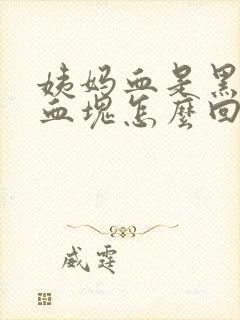 姨妈血是黑
血塊怎麼回
威霆